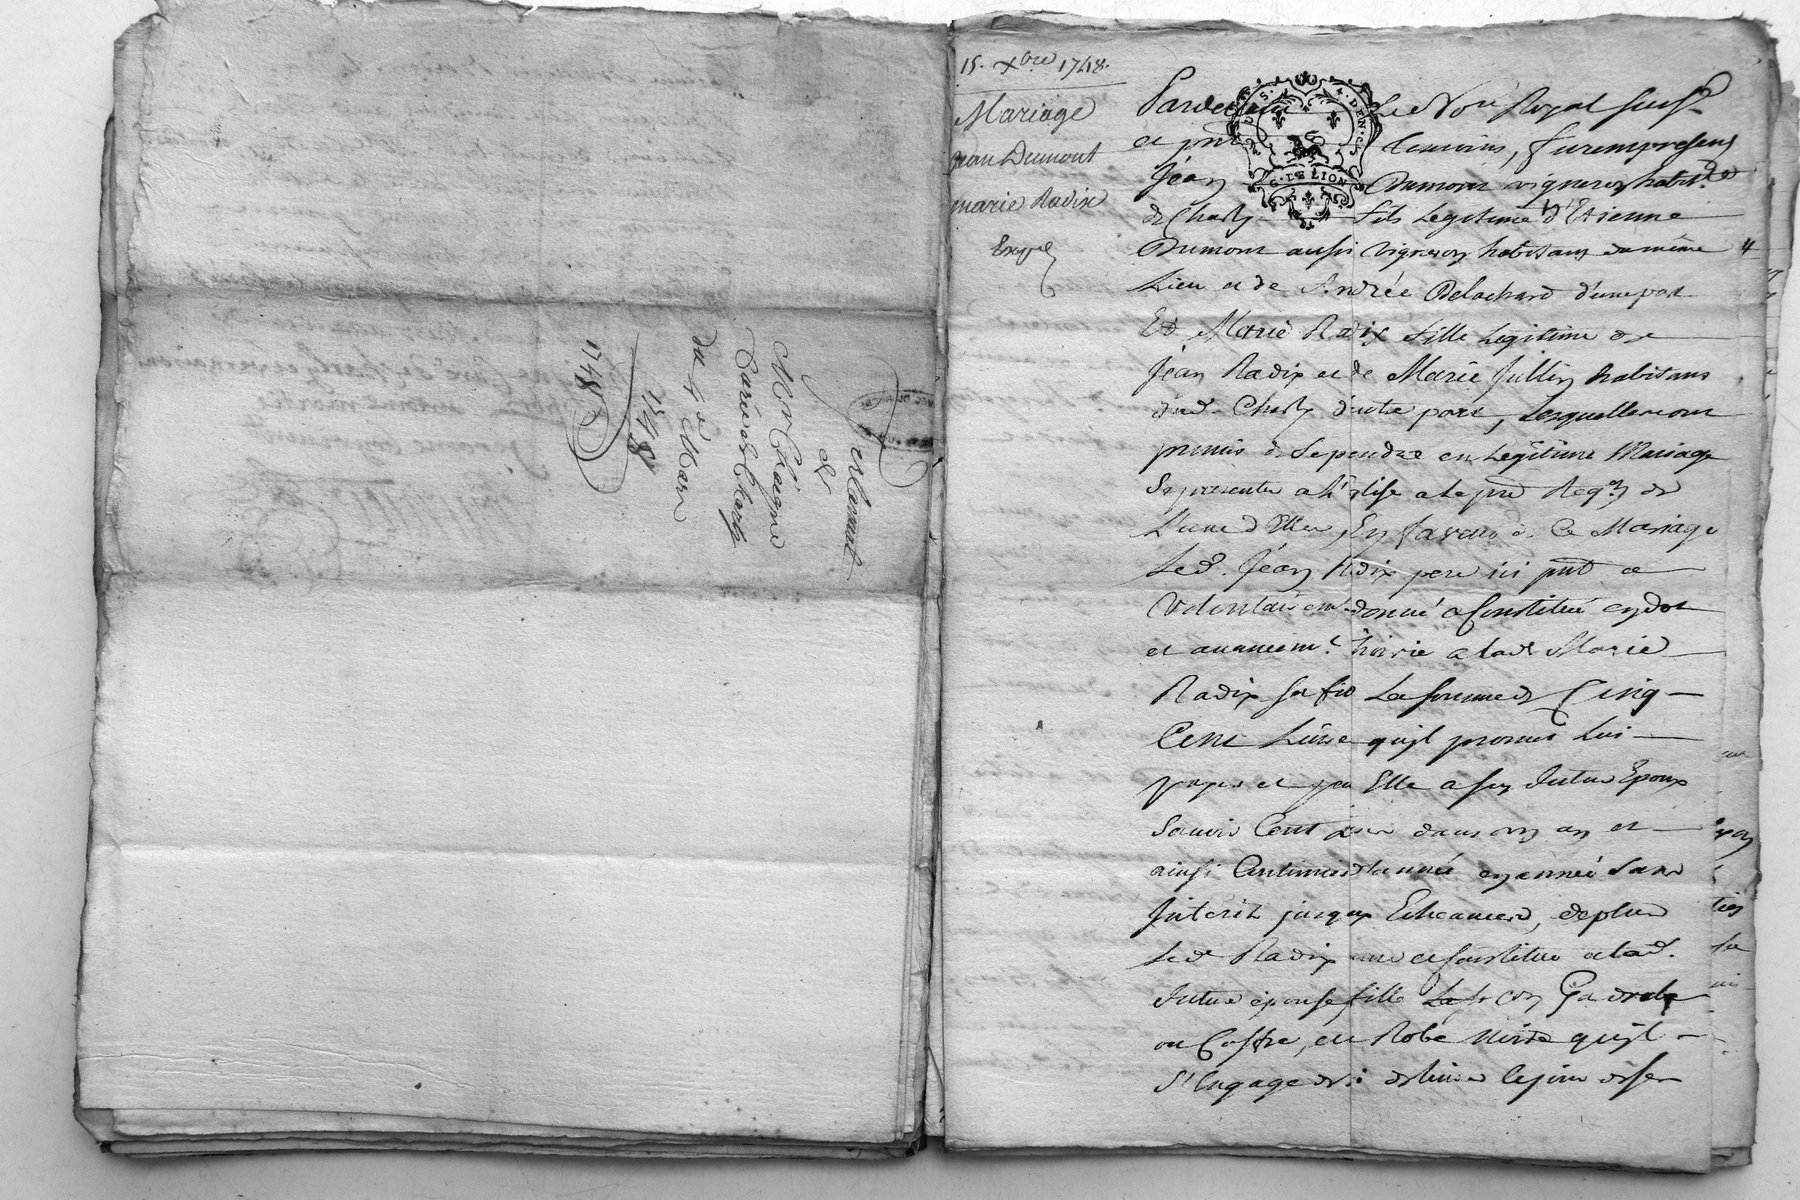 Testament
de
Mre Claigne
Curé de Charly
du 4e Mars
1748
1748
15. Xbre 1748.
Mariage
jean Dumont
marie Radix
Expé
Pardevant Le No.re Royal souss.
et pnts temoins, furent presens
Jean Dumont vigneron habit.
de Charly fils Legitime d'Etienne
Dumont aussi vigneron habitans du même
Lieu et de Andrée Delachard d'une part
Et Marie Radix fille Legitime de
Jean Radix et de Marie Jullin habitans
dud. Charly d'autre part, Lesquelles ont
promis de se prendre en Legitime Mariage
Se presenter a l'Eglise a la pre Reqon de
L'une d'Elles, En faveur de Ce Mariage
Led. Jean Radix pere ici pnt a
Volontairem. donné a Constitué en dot
et avancem.t hoirie a lad. Marie
Radix sa file La somme de Cinq
Cent Livre qu'jl promet Lui
payer et pour Elle a son futur Epoux
Scavoir Cent Livre dans un an et
ainsi Continuer d'année en année sans
Interêt jusqu Echeances, de plus
Led. Radix pere a Constitué a lad.
future épouse fille Garderobe
ou Coffre, une Robe Noire qu'jl
S'Engage de lui delivrer le jour des
G. DE LION